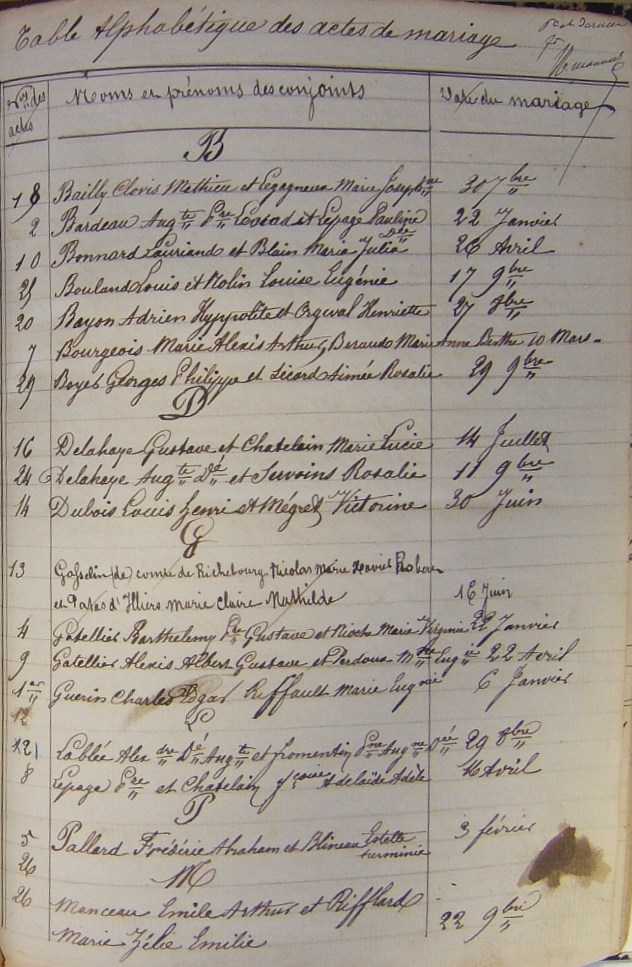 Table Alphabétique des actes de mariage
Nos des actes Noms et prénoms des conjoints Date du mariage
B
18 Bailly Clovis Mathieu et Legagneux Marie Joséphine 30 7bre
2 Bardeau Augte Pre et Lepage Pauline 22 Janvier
10 Bonnard Lauriand et Blain Marie Julia Dée 26 Avril
25 Bouland Louis et Nolin Louise Eugénie 17 9bre
20 Bayon Adrien Hyppolite et Orgeval Henriette 27 8bre
7 Bourgeois Marie Alexis Arthur, Beraudo Marie Anne Berthe 10 Mars
29 Boyer Georges Philippe et Sicard Aimée Rosalie 29 9bre
D
16 Delahaye Gustave et Chatelain Marie Lucie 14 Juillet
24 Delahaye Augte Dé et Servoins Rosalie 11 9bre
14 Dubois Louis Henri et Mégret Victorine 30 Juin
G
13 Gosselin (de) comte de Richebourg Nicolas Marie Xavier
et Patas d'Illiers Marie Claire Mathilde 16 Juin
4 Gatellier Barthelemy Pre Gustave et Marie Virginie 22 Janvier
9 Gatellier Alexis Albert Gustave et Perdoux Eugnie 22 Avril
1er Guerin Charles Edgar Riffault Marie Eugnie 6 Janvier
12
L
121 Lablée Alexdre Dé Augte et Fromentin Augne Dée 29 8bre
8 Lepage Pre et Chatelain Adelaïde Adèle 16 Avril
P
5 Pallard Frédéric Abraham et Blineau Estelle herminie 3 février
26
M
26 Manceau Emile Arthur et Rifflard
Marie Zélie Emilie 22 9bre